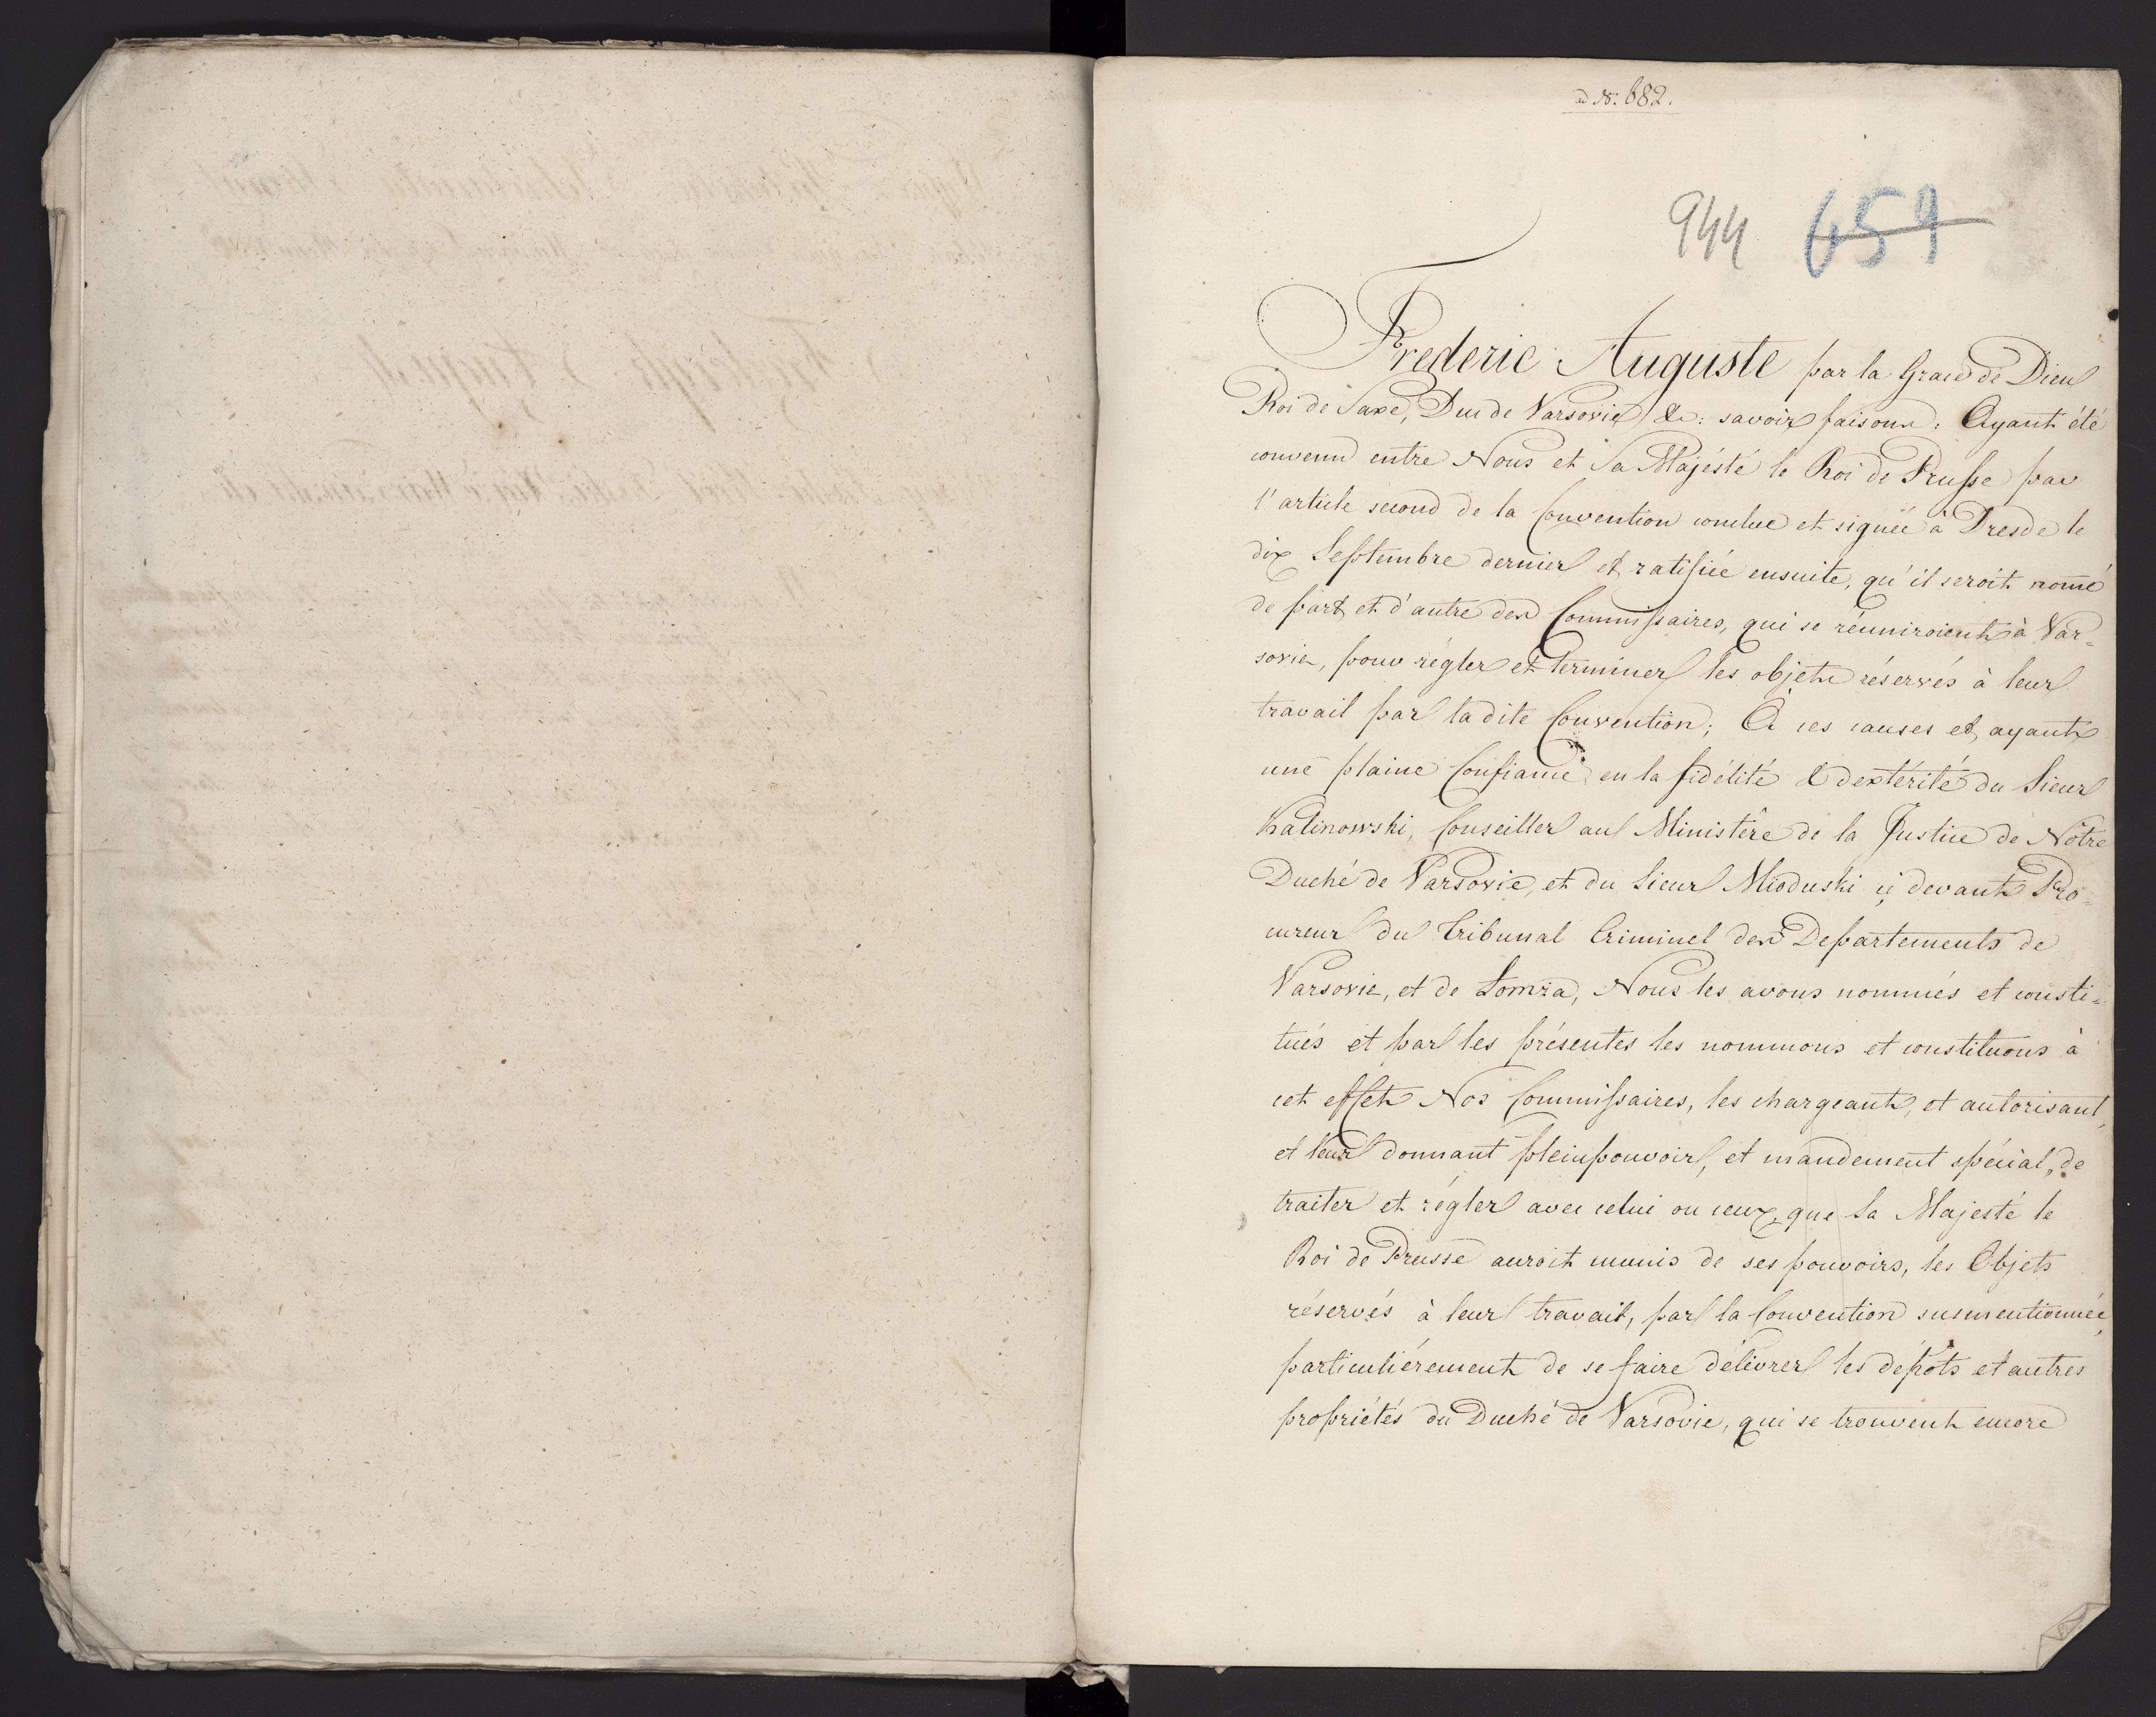 ad N: 682.
944 659
Frederic Auguste par la Grace de Dieu
Roi de Saxe, Duc de Varsovie &c: savoir faisons: Ayant été
convenu entre Nous et Sa Majésté le Roi de Prusse par
l'article second de la Convention conclue et signée à Dresde le
dix Septembre dernier et ratifiée ensuite, qu'il seroit nomé
de part et d'autre des Commissaires, qui se réuniroient à Var=
sovie, pour régler et terminer les objets réservés à leur
travail par ladite Convention; A ces causes et ayant
une plaine Confiance en la fidélité & dextérité du Sieur
Kalinowski, Conseiller au Ministère de la Justice de Nôtre
Duché de Varsovie, et du Sieur Mioduski ci devant Pro=
cureur du Tribunal Criminel des Departements de
Varsovie, et de Łomża, Nous les avons nommés et consti=
tués et par les présentes les nommons et constituons à
cet effet Nos Commissaires, les chargeant, et autorisant,
et leur donnant pleinpouvoir, et mandement spécial, de
traiter et régler avec celui ou ceux, que Sa Majesté le
Roi de Prusse auroit munis de ses pouvoirs, les Objets
réservés à leur travail, par la Convention susmentionnée,
particuliérement de se faire délivrer les depôts et autres
propriétés du Duché de Varsovie, qui se trouvent encore